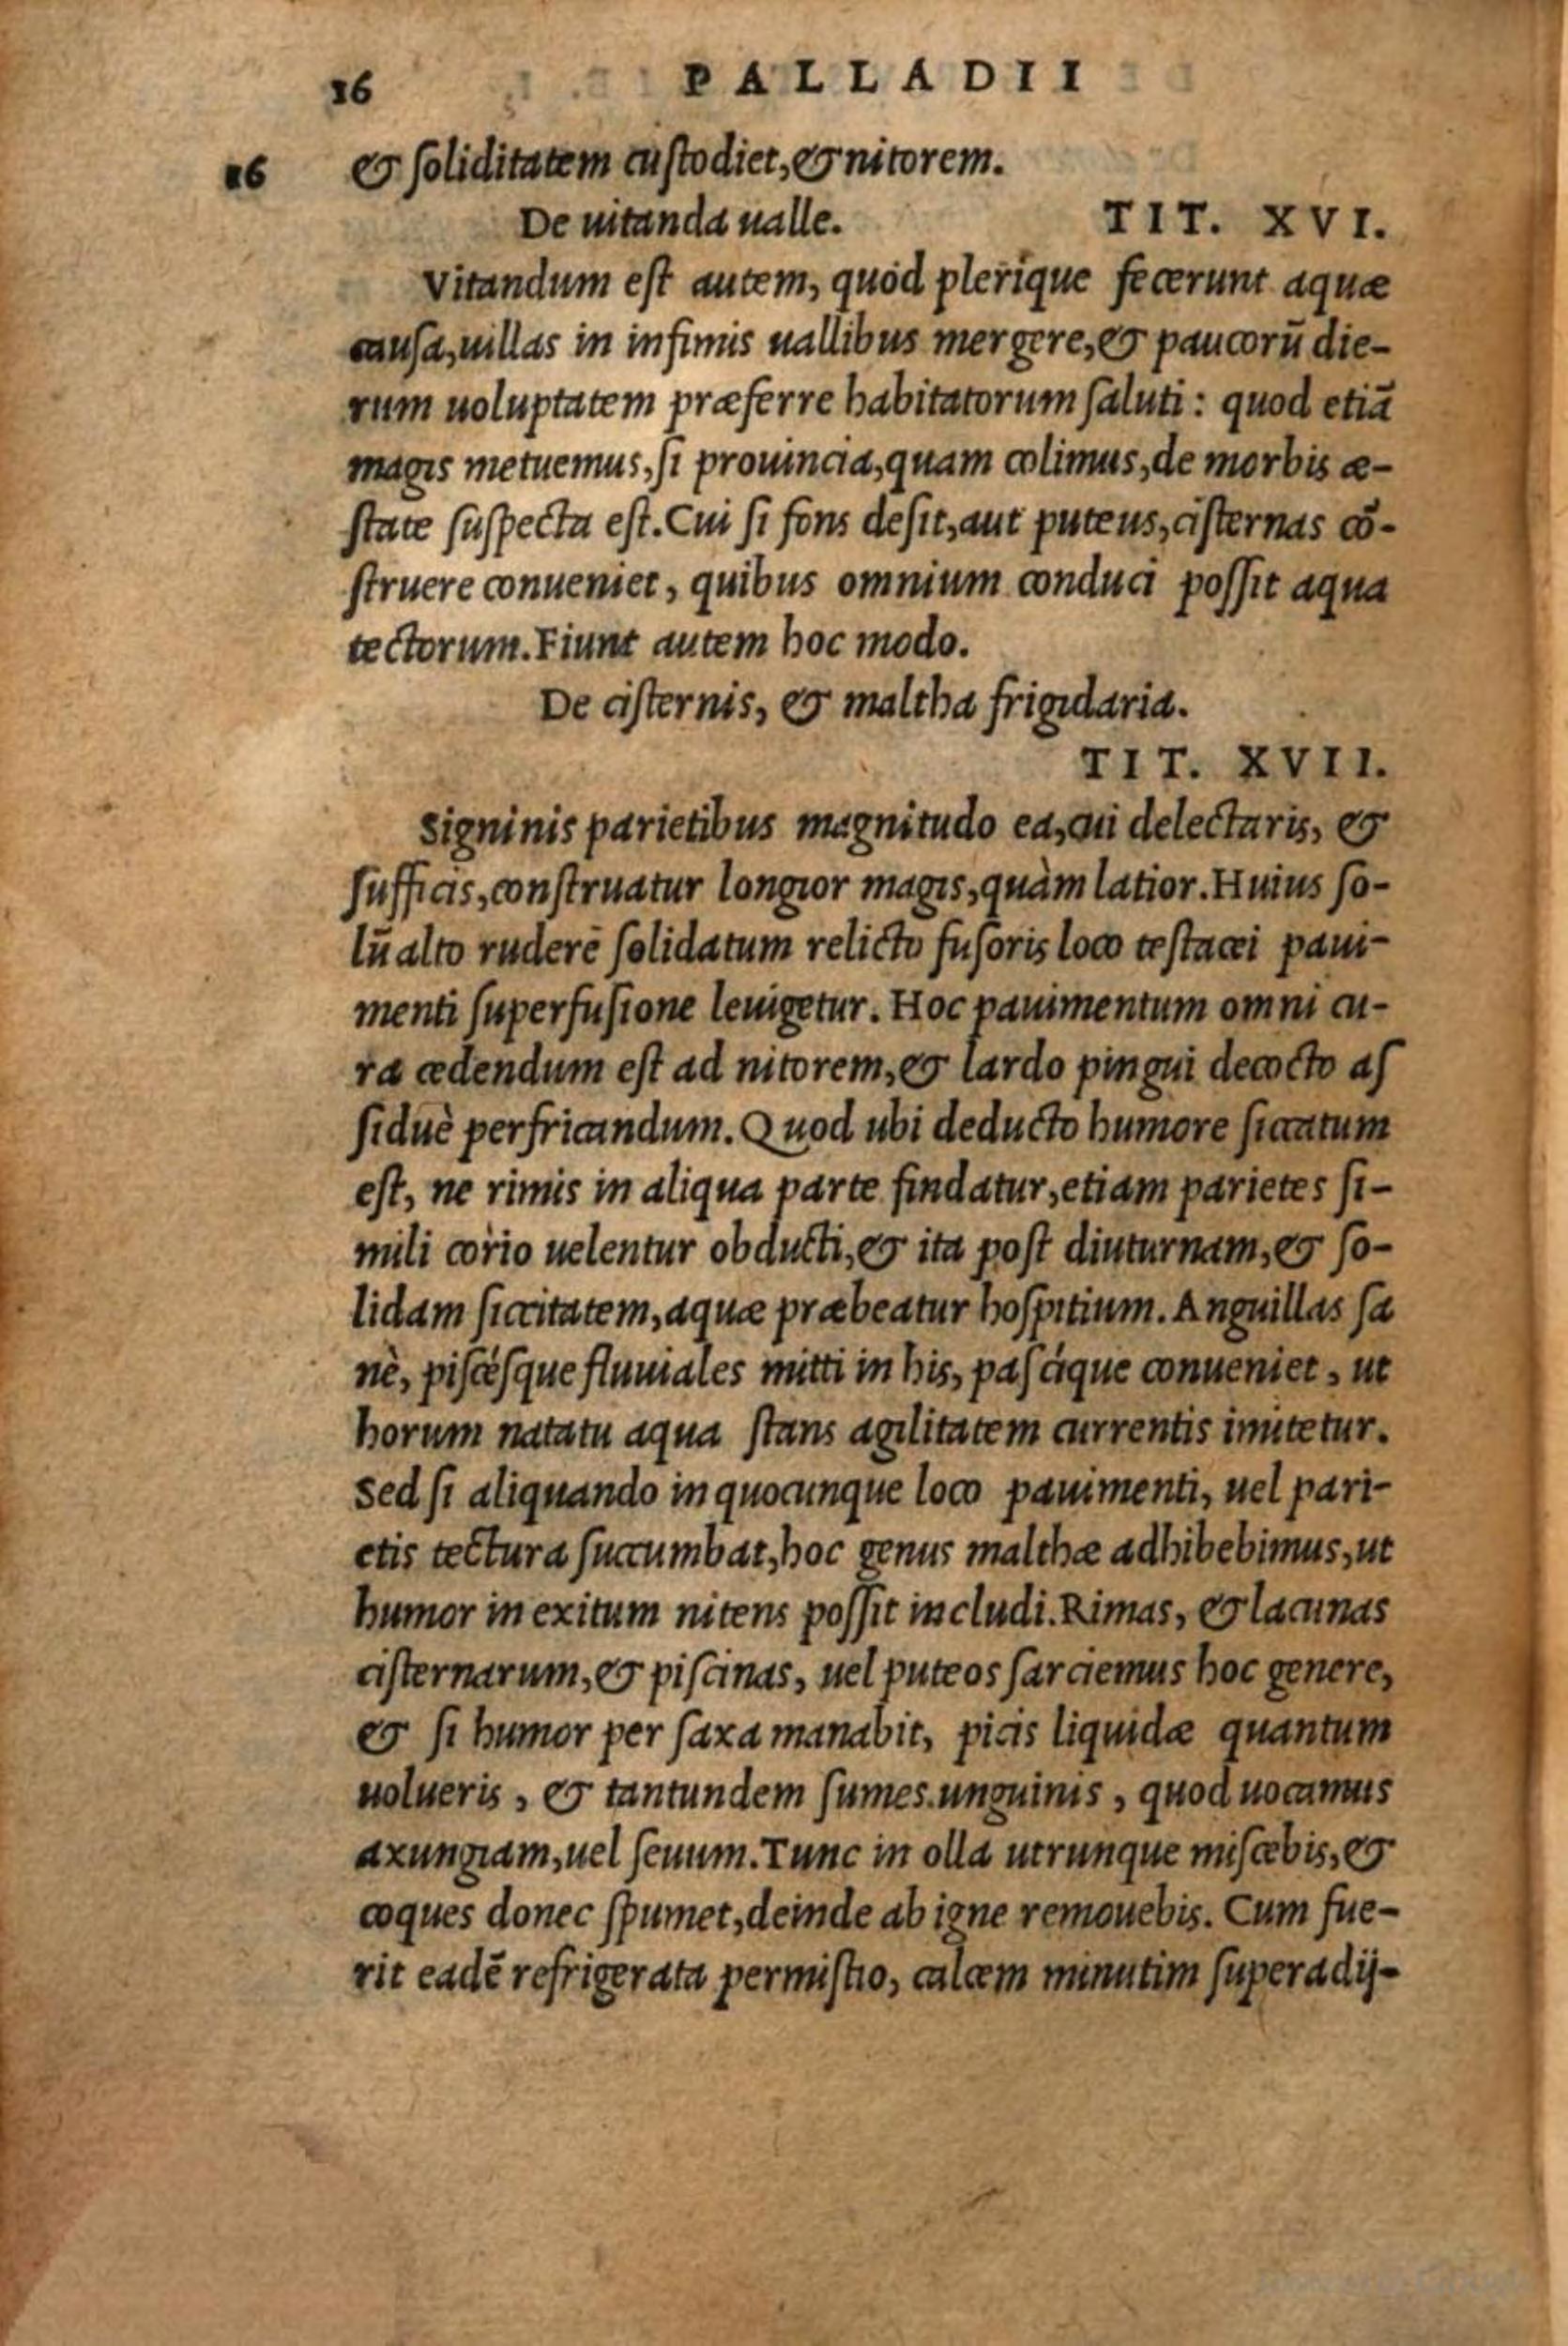 16 PALLADII
16 & soliditatem custodiet,& nitorem.
De uitanda ualle. TIT. XVI.
Vitandum est autem, quód plerique fecerunt aquæ
causa,uillas in infimis uallibus mergere,& paucorū die-
rum uoluptatem præferre habitatorum saluti: quod etiā
magis metuemus,si prouincia,quam colimus,de morbis æ-
state suspecta est.Cui si fons desit,aut puteus,cisternas cō-
struere conueniet, quibus omnium conduci possit aqua
tectorum.Fiunt autem hoc modo.
De cisternis, & maltha frigidaria.
TIT. XVII.
Signinis parietibus magnitudo ea,cui delectaris, &
sufficis,construatur longior magis,quàm latior.Huius so-
lū alto ruderē solidatum relicto fusoris loco testacei paui-
menti superfusione leuigetur. Hoc pauimentum omni cu-
ra cædendum est ad nitorem,& lardo pingui decocto as
siduè perfricandum. Quod ubi deducto humore siccatum
est, ne rimis in aliqua parte findatur,etiam parietes si-
mili corio uelentur obducti,& ita post diuturnam,& so-
lidam siccitatem,aquæ præbeatur hospitium. Anguillas sa
nè, piscésque fluuiales mitti in his, pascíque conueniet, ut
horum natatu aqua stans agilitatem currentis imitetur.
Sed si aliquando in quocunque loco pauimenti, uel pari-
etis tectura succumbat,hoc genus malthæ adhibebimus,ut
humor in exitum nitens possit includi.Rimas, & lacunas
cisternarum,& piscinas, uel puteos sarciemus hoc genere,
& si humor per saxa manabit, picis liquidæ quantum
uolueris, & tantundem sumes unguinis, quod uocamus
axungiam,uel seuum.Tunc in olla utrunque miscebis,&
coques donec spumet,deinde ab igne remouebis. Cum fue-
rit eadē refrigerata permistio, calcem minutim superadij-